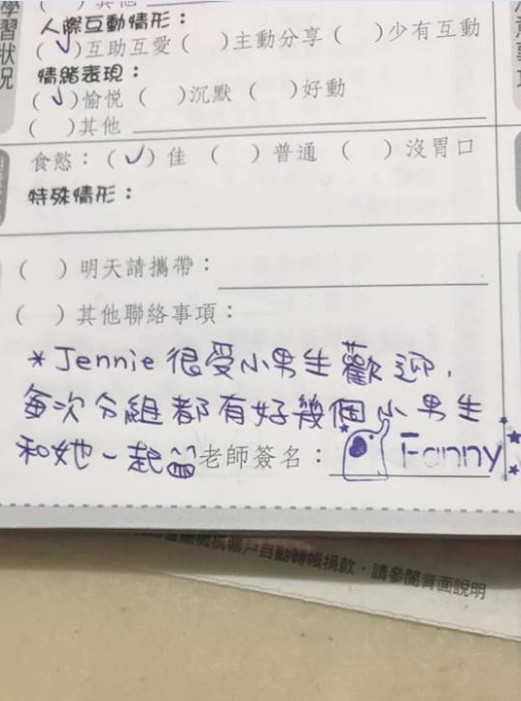 其他
人際互動情形：
(✓)互助互愛 ( )主動分享 ( )少有互動
情緒表現：
(✓)愉悅 ( )沉默 ( )好動
( )其他
食慾：(✓)佳 ( )普通 ( )沒胃口
特殊情形：
( )明天請攜帶：
( )其他聯絡事項：
*Jennie很受小男生歡迎，
每次分組都有好幾個小男生
和她一起
老師簽名： Fanny
學習狀況
帳戶自動轉帳捐款，請參閱背面說明